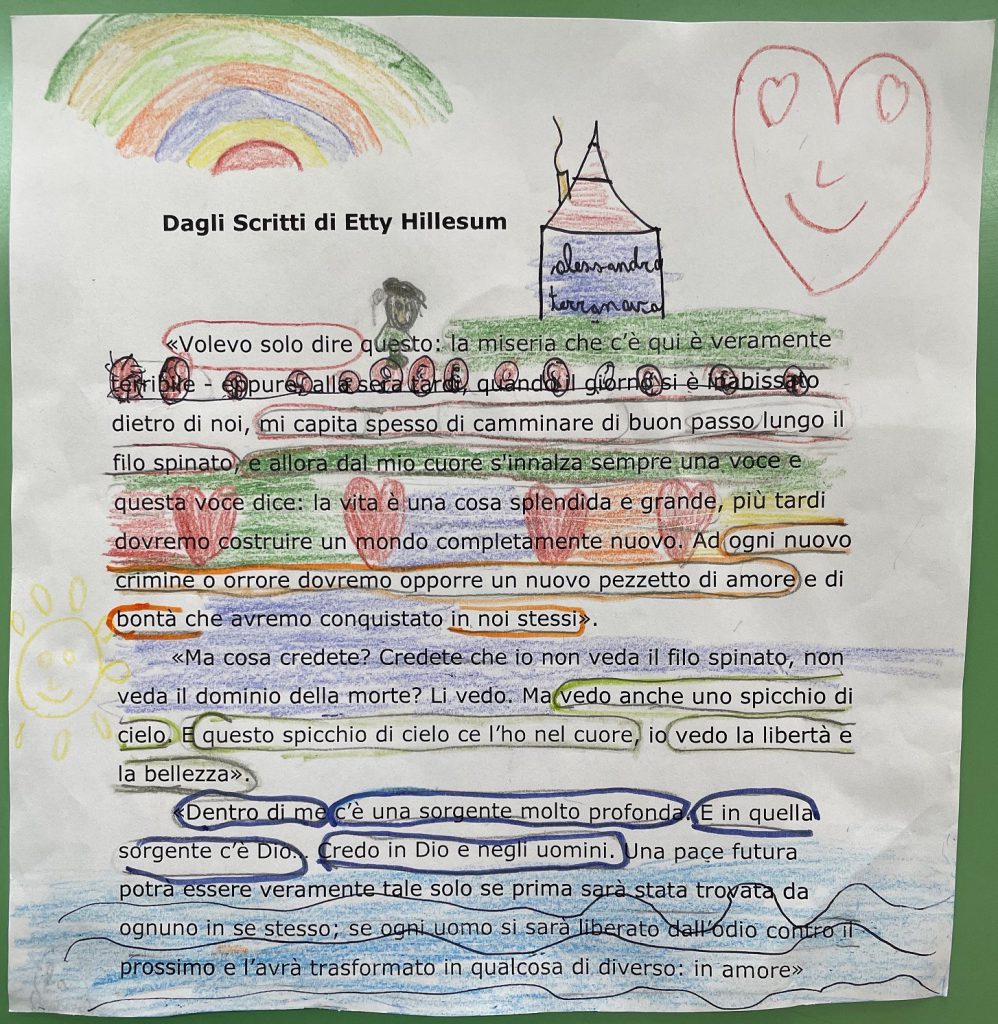 Dagli Scritti di Etty Hillesum
alessandro
terranova
«Volevo solo dire questo: la miseria che c'è qui è veramente
terribile - eppure, alla sera tardi, quando il giorno si è inabissato
dietro di noi, mi capita spesso di camminare di buon passo lungo il
filo spinato, e allora dal mio cuore s'innalza sempre una voce e
questa voce dice: la vita è una cosa splendida e grande, più tardi
dovremo costruire un mondo completamente nuovo. Ad ogni nuovo
crimine o orrore dovremo opporre un nuovo pezzetto di amore e di
bontà che avremo conquistato in noi stessi».
«Ma cosa credete? Credete che io non veda il filo spinato, non
veda il dominio della morte? Li vedo. Ma vedo anche uno spicchio di
cielo. E questo spicchio di cielo ce l'ho nel cuore, io vedo la libertà e
la bellezza».
«Dentro di me c'è una sorgente molto profonda. E in quella
sorgente c'è Dio.. Credo in Dio e negli uomini. Una pace futura
potrà essere veramente tale solo se prima sarà stata trovata da
ognuno in se stesso; se ogni uomo si sarà liberato dall'odio contro il
prossimo e l'avrà trasformato in qualcosa di diverso: in amore»